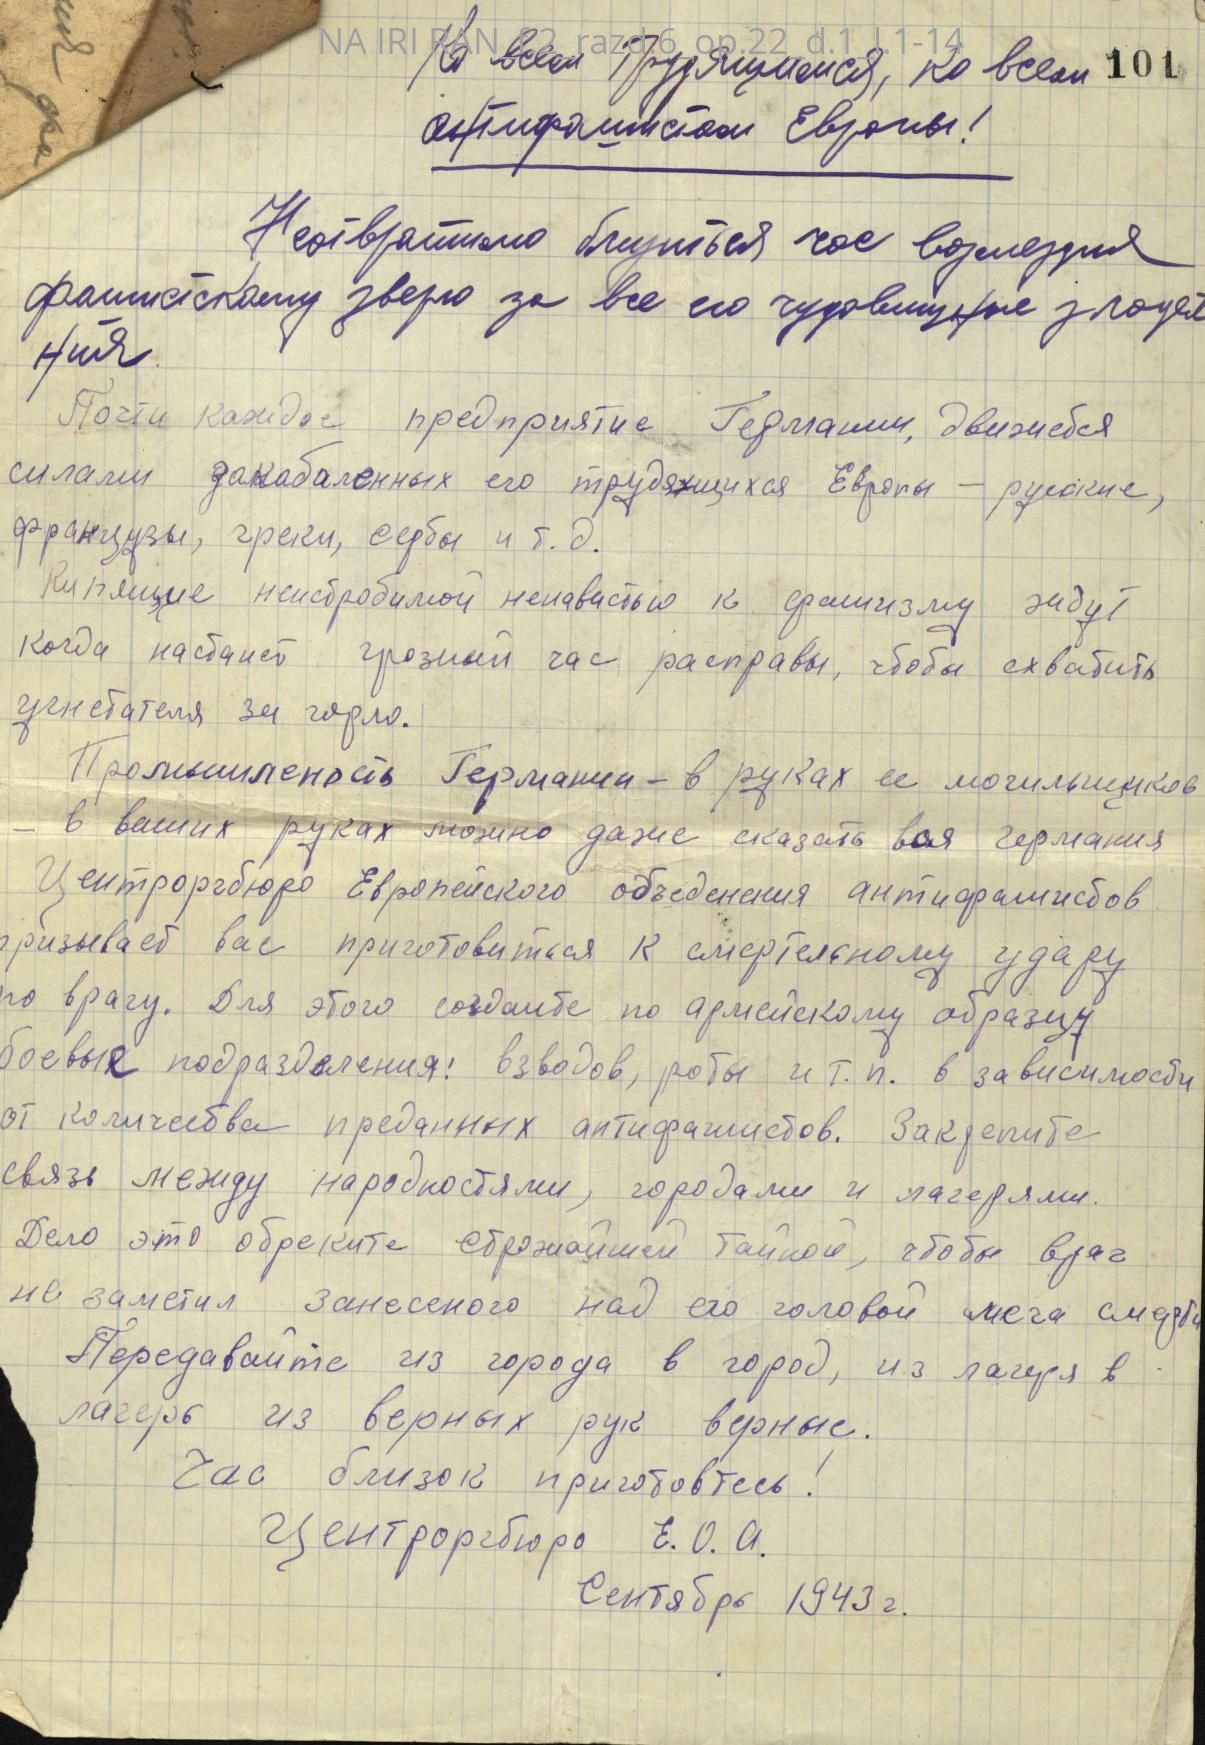 NA IRI RAN f.2 razd.6 op.22 d.1 l.1-14
Ко всем Трудящимся, ко всем 101
антифашистам Европы!
Неотвратимо близиться час возмездия
фашистскому зверю за все его чудовищные злодея
ния.
Почти каждое предприятие Германии, движется
силами закабаленных его трудящихся Европы — русские,
французы, греки, сербы и т.д.
Кипящие неистробимой ненавистью к фашизму ждут
когда настанет грозный час расправы, чтобы схватить
угнетателя за горло.
Промышленость Германии — в руках ее могильщиков
— в ваших руках можно даже сказать вся германия
Центроргбюро Европейского объеденения антифашистов
призывает вас приготовиться к смертельному удару
по врагу. Для этого создайте по армейскому образцу
боевые подразделения: взводов, роты и т.п. в зависимости
от количества преданных антифашистов. Закрепите
связь между народностями, городами и лагерями.
Дело это обреките строжайшей тайной, чтобы враг
не заметил занесеного над его головой меча смерти
Передавайте из города в город, из лагеря в
лагерь из верных рук верные.
Час близок приготовтесь!
Центроргбюро Е.О.А.
Сентябрь 1943 г.